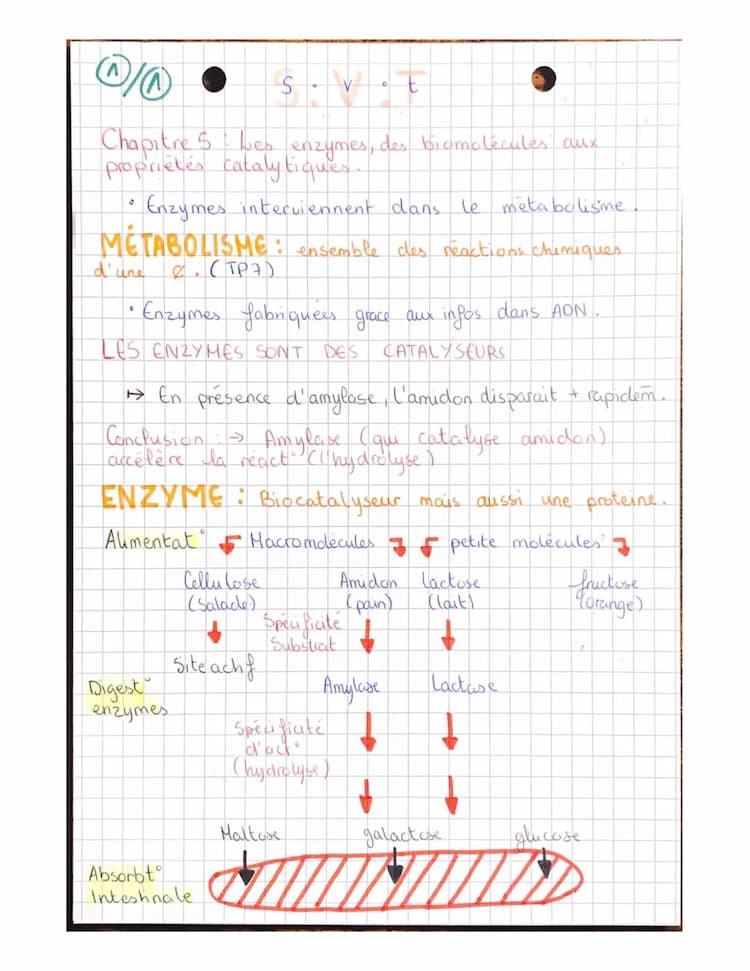 1/1
S.V.T
S . v . t
Chapitre 5 : Les enzymes, des biomolécules aux
propriétés catalytiques.
• Enzymes interviennent dans le métabolisme.
MÉTABOLISME : ensemble des réactions chimiques
d'une ¢. (TP7)
• Enzymes fabriquées grace aux infos dans ADN.
LES ENZYMES SONT DES CATALYSEURS
↦ En présence d'amylase, l'amidon disparait + rapidem̄.
Conclusion : → Amylase (qui catalyse amidon)
accélère la réact° (l'hydrolyse)
ENZYME : Biocatalyseur mais aussi une proteine.
Alimentat° Macromolécules petite molécules
Cellulose Amidon Lactose fructose
(Salade) (pain) (lait) (orange)
Spécificité
Substrat
Site actif
Digest° Amylase Lactase
enzymes
Spécificité
d'act°
(hydrolyse)
Maltose galactose glucose
Absorbt°
Intestinale